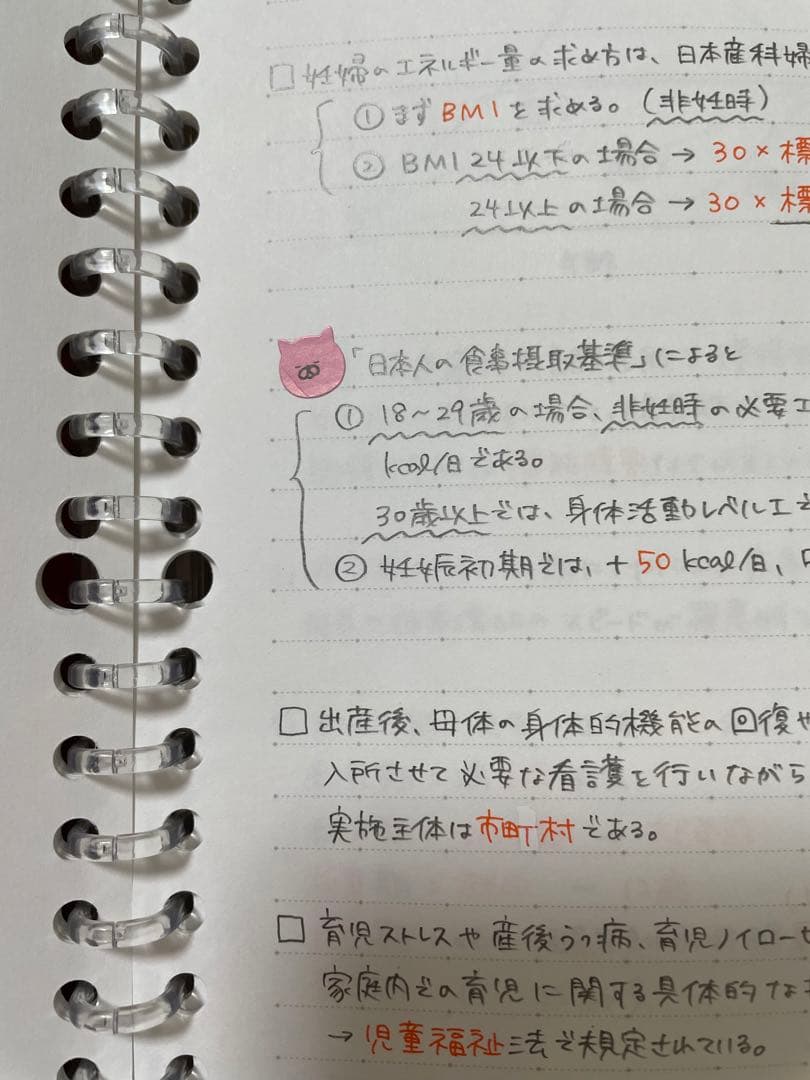 □ 妊婦のエネルギー量の求め方は、日本産科婦
① まずBMIを求める。(非妊時)
② BMI 24以下の場合 → 30 × 標
24以上の場合 → 30 × 標
「日本人の食事摂取基準」によると
① 18~29歳の場合、非妊時の必要エ
kcal/日である。
30歳以上では、身体活動レベルエで
② 妊娠初期では、+50 kcal/日、
□ 出産後、母体の身体的機能の回復や
入所させて必要な看護を行いながら
実施主体は市町村である。
□ 育児ストレスや産後うつ病、育児ノイローゼ
家庭内での育児に関する具体的な
→ 児童福祉法で規定されている。